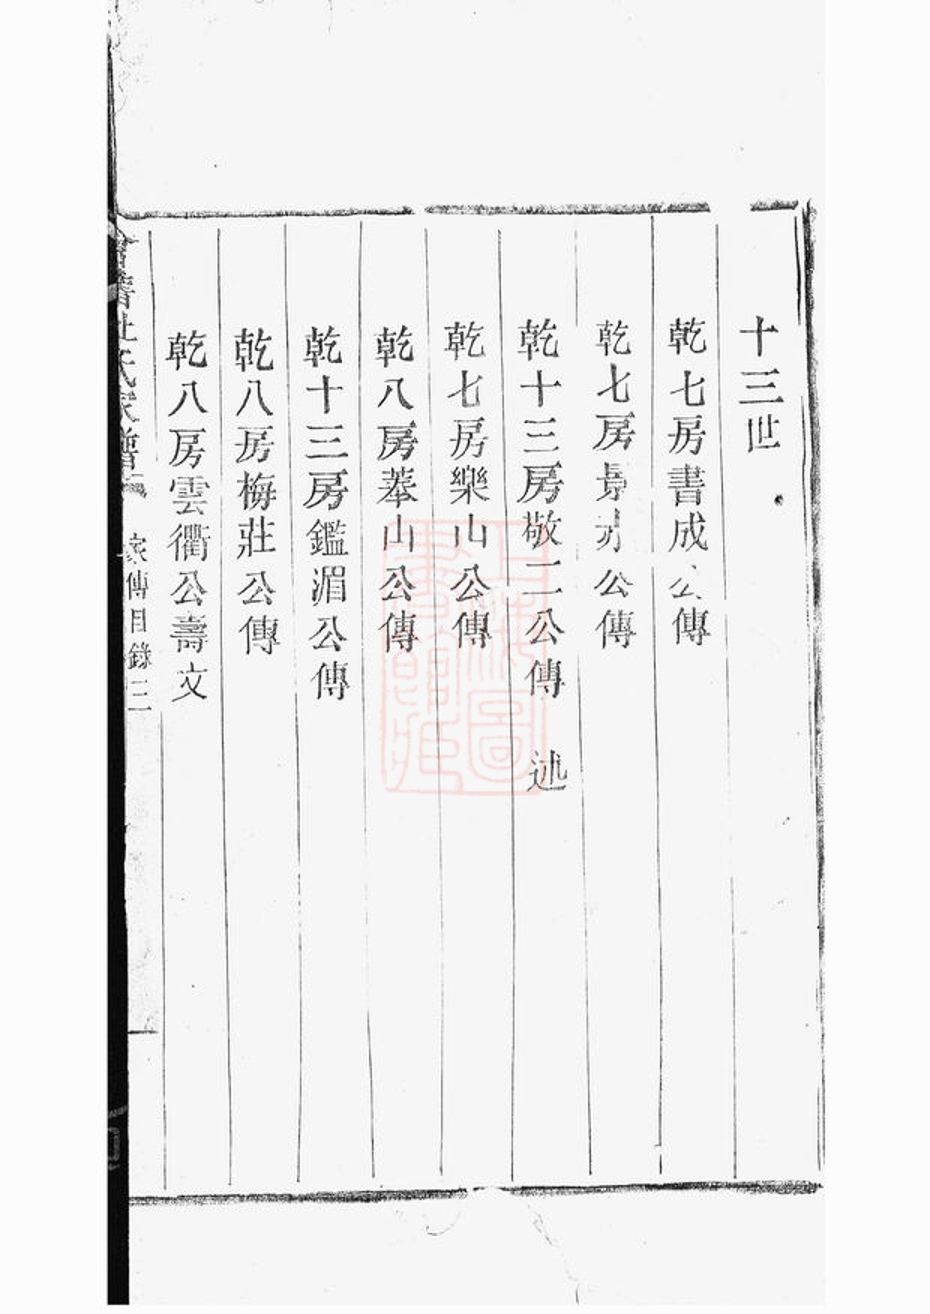 十三世
乾七房書成公傳
乾七房景公傳
乾十三房敬二公傳　述
乾七房樂山公傳
乾八房莑山公傳
乾十三房鑑湄公傳
乾八房梅莊公傳
乾八房雲衢公壽文
杜氏家譜　家傳目錄三
上海圖書館藏